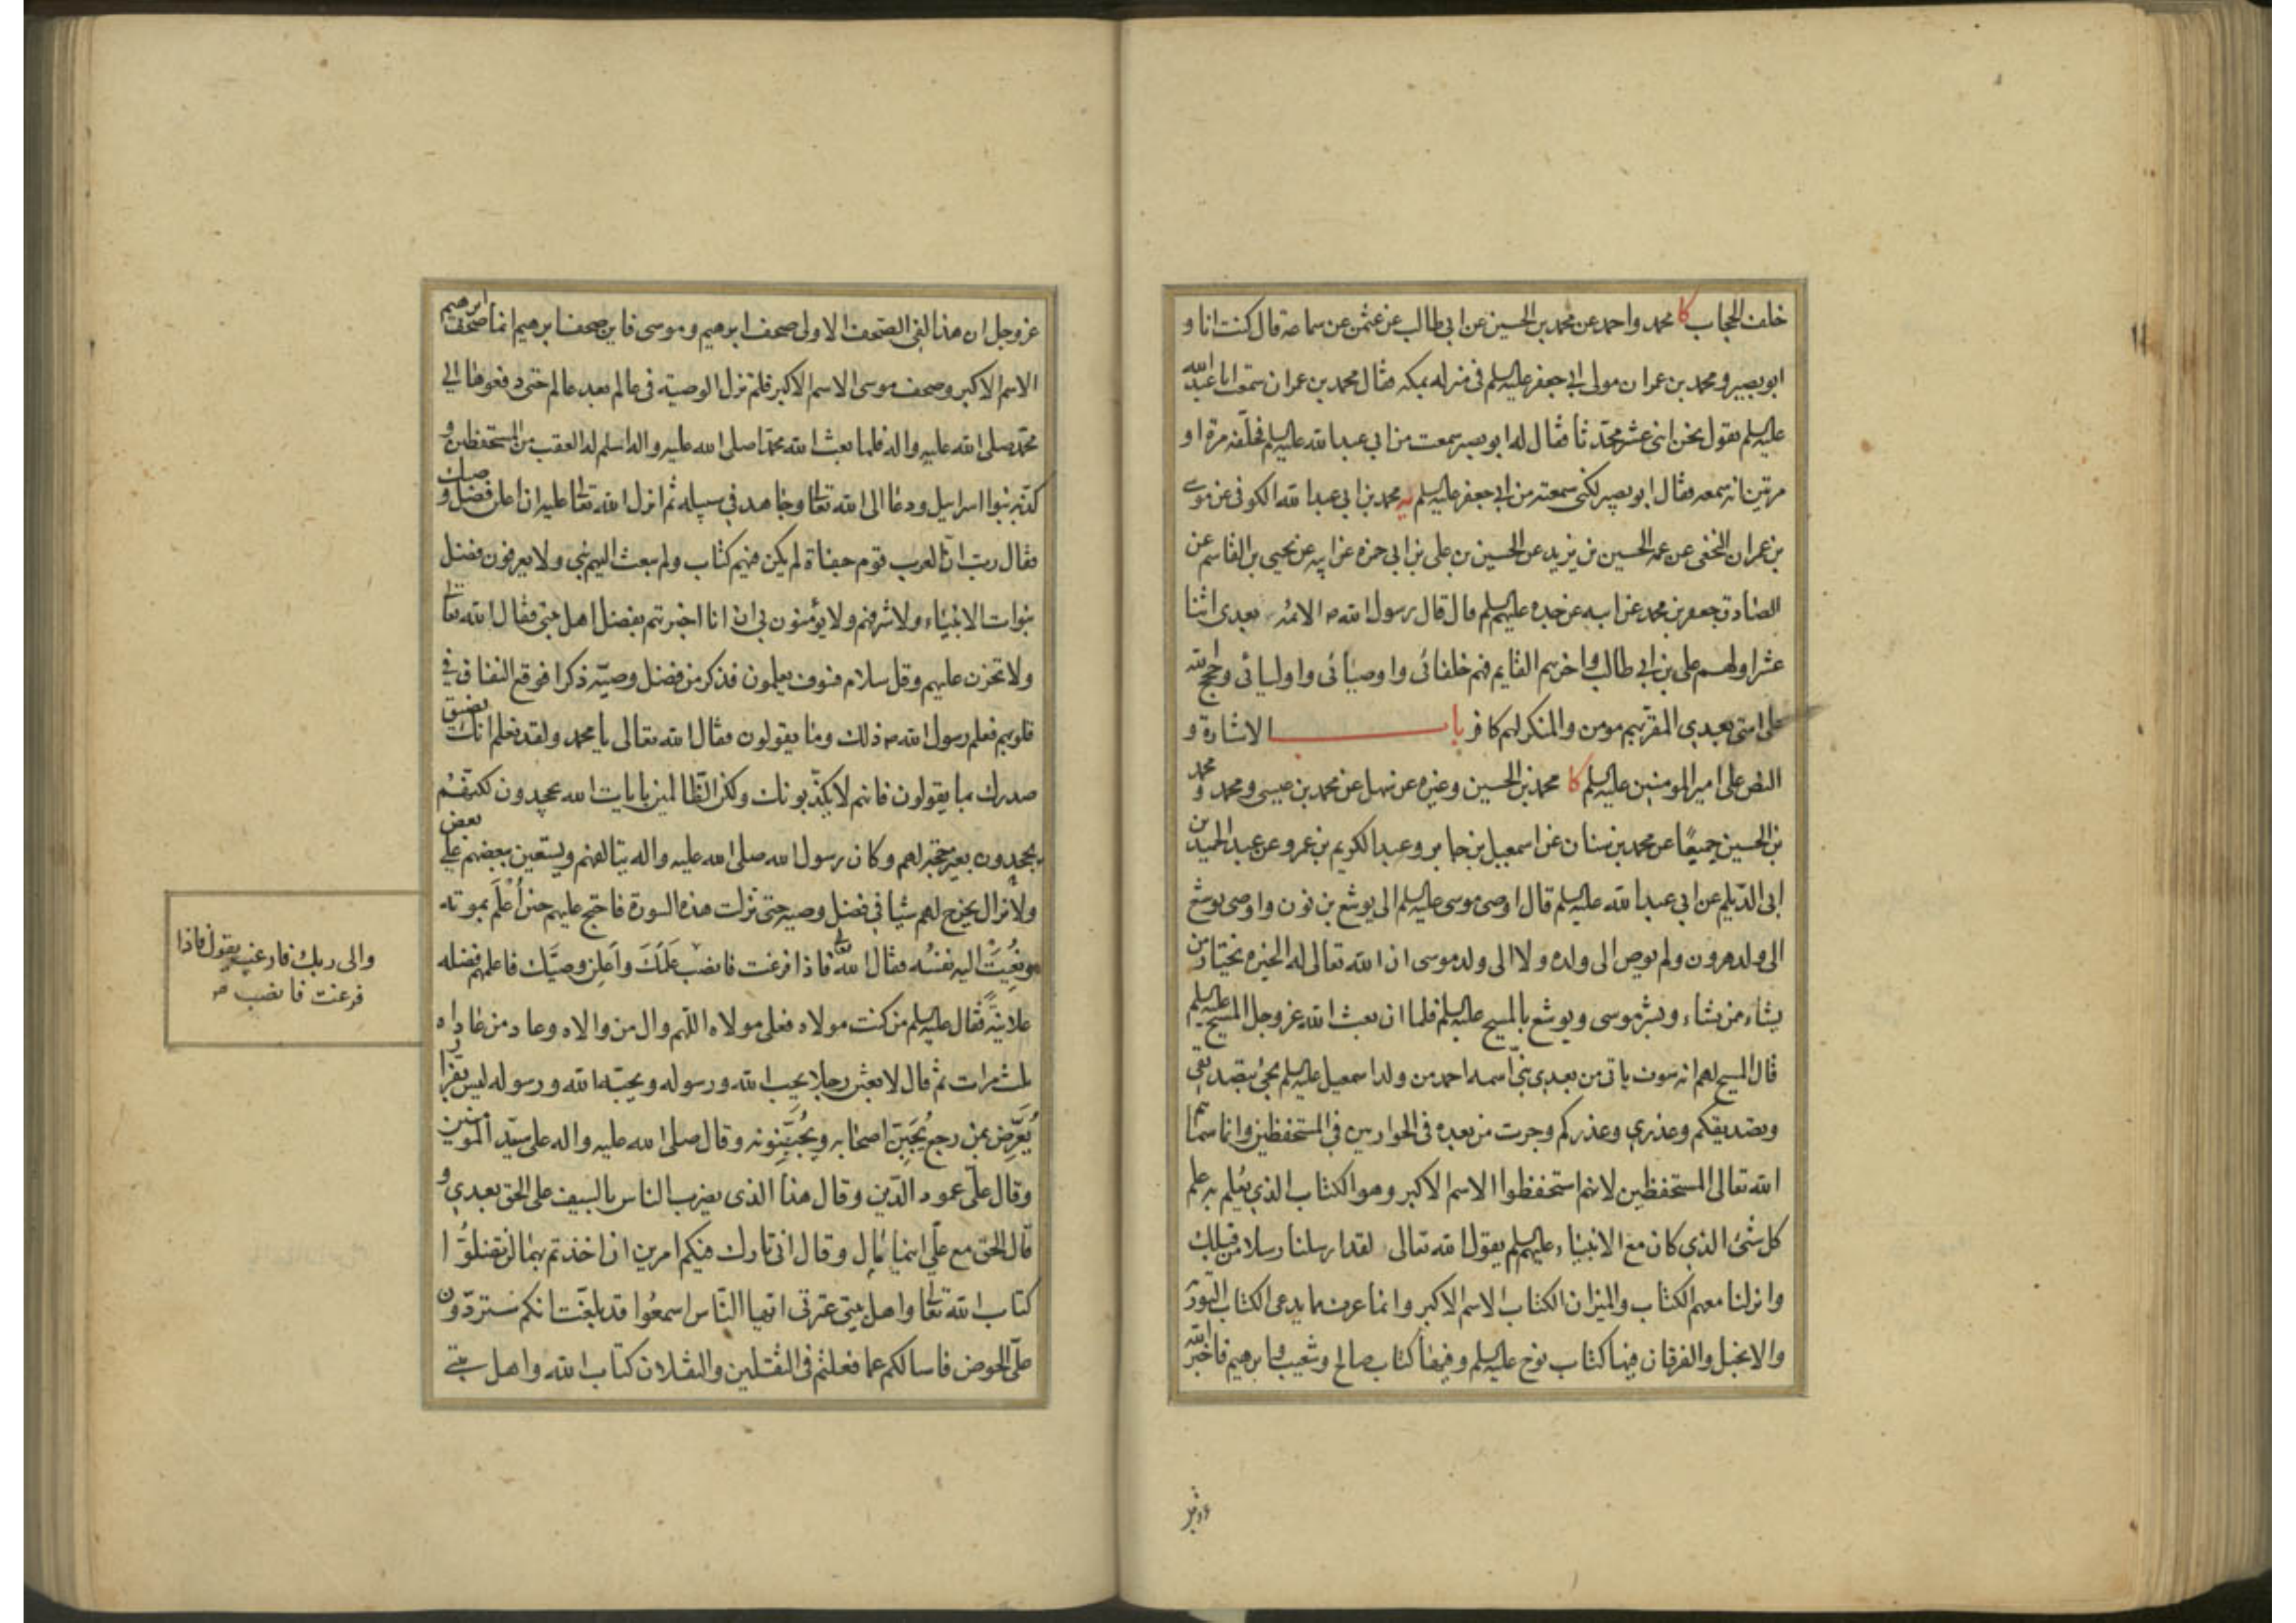 خلف الحجاب كا محمد واحمد عن محمد بن الحسين عن ابى طالب عن عثمن عن سماعة قال كنت انا و
ابو بصير و محمد بن عمران مولى ابى جعفر عليه السلم فى منزله بمكه فقال محمد بن عمران سمعت ابا عبد الله
عليه السلم يقول نحن اثنى عشر محدّثا فقال له ابو بصير سمعت من ابى عبد الله عليه السلم فحلّفه مرة او
مرتين انه سمعه فقال ابو بصير لكنى سمعته من ابى جعفر عليه السلم يه محمد بن ابى عبد الله الكوفى عن موسى
بن عمران النخعى عن عمه الحسين بن يزيد عن الحسين بن على بن ابى حمزه عن ابيه عن يحيى بن القاسم عن
الصادق جعفر بن محمد عن ابيه عن جده عليهم السلم قال قال رسول الله ص الائمه بعدى اثنا
عشر اولهم على بن ابى طالب واخرهم القايم فهم خلفائى واوصيائى واوليائى وحجج الله
على امتى بعدى المقر بهم مومن والمنكر لهم كافر باب الاشارة و
النص على امير المومنين عليه السلم كا محمد بن الحسين وغيره عن سهل عن محمد بن عيسى ومحمد و محمد
بن الحسين جميعًا عن محمد بن سنان عن اسمعيل بن جابر وعبد الكريم بن عمرو عن عبد الحميد بن
ابى الديلم عن ابى عبد الله عليه السلم قال اوصى موسى عليه السلم الى يوشع بن نون واوصى يوشع
الى ولد هرون ولم يوص الى ولده ولا الى ولد موسى ان الله تعالى له الخيره يختار من
يشاء ممن يشاء وبشر موسى ويوشع بالمسيح عليه السلم فلما ان بعث الله عز وجل المسيح عليه السلم
قال المسيح لهم انه سوف ياتى من بعدى نبىّ اسمه احمد من ولد اسمعيل عليه السلم يجئ بتصديقى
وتصديقكم وعذرى وعذركم وجرت من بعده فى الحواريين فى المستحفظين وانما سماهم
الله تعالى المستحفظين لانهم استحفظوا الاسم الاكبر وهو الكتاب الذى يعلم به علم
كل شئ الذى كان مع الانبياء عليهم السلم يقول الله تعالى لقد ارسلنا رسلا من قبلك
وانزلنا معهم الكتاب والميزان الكتاب الاسم الاكبر وانما عرف مما يدعى الكتاب التورية
والانجيل والفرقان فيها كتاب نوح عليه السلم وفيها كتاب صالح وشعيب وابرهيم فاخبر الله
عز وجل ان هذا لفى الصحف الاولى صحف ابرهيم وموسى فاين صحف ابرهيم انما صحف ابرهيم
الاسم الاكبر وصحف موسى الاسم الاكبر فلم تزل الوصية فى عالم بعد عالم حتى دفعوها الى
محمّد صلى الله عليه واله فلما بعث الله محمّدا صلى الله عليه واله اسلم له العقب من المستحفظين و
كذّبه بنوا اسرايل ودعا الى الله تعالى وجاهد فى سبيله ثم انزل الله تعالى عليه ان اعلن فضل وصيك
فقال ربّ انّ العرب قوم جفاة لم يكن فيهم كتاب ولم يبعث اليهم نبى ولا يعرفون فضل
نبوات الانبياء ولا شرفهم ولا يؤمنون بى ان انا اخبرتهم بفضل اهل بيتى فقال الله تعالى
ولا تحزن عليهم وقل سلام فسوف يعلمون فذكر من فضل وصيّه ذكرا فوقع النفاق فى
قلوبهم فعلم رسول الله ص ذلك وما يقولون فقال الله تعالى يا محمد ولقد نعلم انك يضيق
صدرك بما يقولون فانهم لا يكذّبونك ولكن الظّالمين بايات الله يجحدون لكنّهم
يجحدون بغير حجّة لهم وكان رسول الله صلى الله عليه واله يتالفهم ويستعين ببعضهم على بعض
ولا يزال يخرج لهم شيا فى فضل وصيه حتى نزلت هذه السورة فاحتج عليهم حين أُعْلَم بموته
ونُعِيَتْ اليه نفسُه فقال الله تعالى فاذا فرغت فانصب عَلَمَكَ وأعلِن وصيَّك فاعلمهم فضله
علانيةً فقال عليه السلم من كنت مولاه فعلى مولاه اللهم وال من والاه وعاد من عاداه
ثلث مرات ثم قال لابعثن رجلا يحب الله ورسوله ويحبّه الله ورسوله ليس بفرّار
يُعَرِّض بمن رجع يُجَبِّنُ اصحابه ويُجَبِّنونه وقال صلى الله عليه واله على سيّد المومنين
وقال علىّ عمود الدّين وقال هذا الذى يضرب الناس بالسيف على الحق بعدى و
قال الحق مع علىّ اينما مال وقال انى تارك فيكم امرين ان اخذتم بهما لن تضلوا
كتاب الله تعالى واهل بيتى عترتى ايها النّاس اسمعُوا قد بلغت انكم ستردّون
علىّ الحوض فاسالكم عما فعلتم فى الثقلين والثقلان كتاب الله واهل بيتى
والى ربك فارغب يقول فاذا
فرغت فانصب